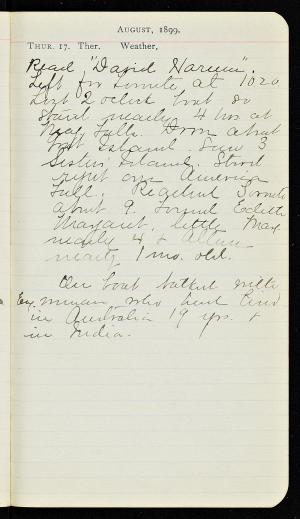 AUGUST, 1899.
THUR. 17. Ther. Weather,
Read "David Harum".
Left for Toronto at 10 20
Lost 2 oclock boat so
staid nearly 4 hrs at
Niag Falls. Drove about
Goat Island. Saw 3
Sisters Island. Stood
right over American
Fall. Reached Toronto
about 9. Found Edith
Margaret, little Max
nearly 4 & Allan
nearly 1 mo. old.
On boat talked with
Eng. man who had lived
in Australia 19 yrs. &
in India.